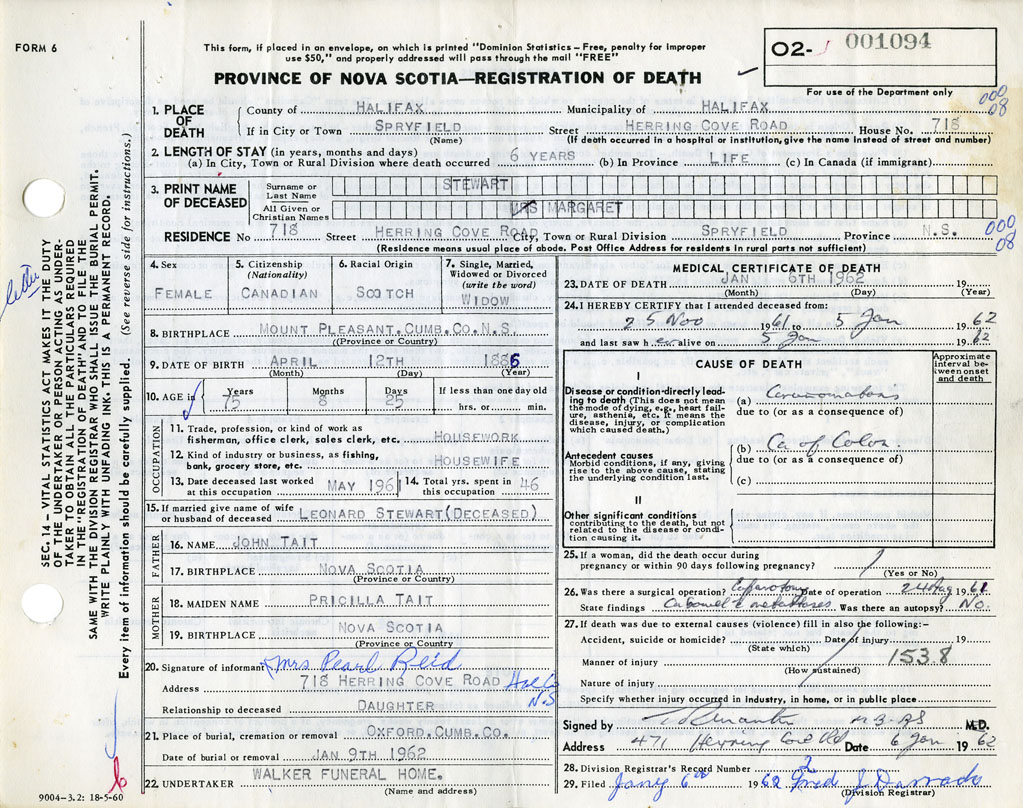 FORM 6
This form, if placed in an envelope, on which is printed "Dominion Statistics – Free, penalty for improper
use $50," and properly addressed will pass through the mail "FREE"
PROVINCE OF NOVA SCOTIA—REGISTRATION OF DEATH
02- 001094
For use of the Department only
000
08
1. PLACE OF DEATH
County of HALIFAX Municipality of HALIFAX
If in City or Town SPRYFIELD Street HERRING COVE ROAD House No. 718
(Name) (If death occurred in a hospital or institution, give the name instead of street and number)
2. LENGTH OF STAY (in years, months and days)
(a) In City, Town or Rural Division where death occurred 6 YEARS (b) In Province LIFE (c) In Canada (if immigrant)
3. PRINT NAME OF DECEASED
Surname or Last Name STEWART
All Given or Christian Names MRS MARGARET
RESIDENCE No 718 Street HERRING COVE ROAD City, Town or Rural Division SPRYFIELD Province N.S.
000
08
(Residence means usual place of abode. Post Office Address for residents in rural parts not sufficient)
4. Sex
FEMALE
5. Citizenship (Nationality)
CANADIAN
6. Racial Origin
SCOTCH
7. Single, Married, Widowed or Divorced (write the word)
WIDOW
8. BIRTHPLACE MOUNT PLEASANT. CUMB. CO. N.S.
(Province or Country)
9. DATE OF BIRTH APRIL 12TH 1886
(Month) (Day) (Year)
10. AGE in Years 75 Months 8 Days 25 If less than one day old hrs. or min.
OCCUPATION
11. Trade, profession, or kind of work as
fisherman, office clerk, sales clerk, etc. HOUSEWORK
12. Kind of industry or business, as fishing,
bank, grocery store, etc. HOUSEWIFE
13. Date deceased last worked
at this occupation MAY 1961
14. Total yrs. spent in
this occupation 46
15. If married give name of wife
or husband of deceased LEONARD STEWART (DECEASED)
FATHER
16. NAME JOHN TAIT
17. BIRTHPLACE NOVA SCOTIA
(Province or Country)
MOTHER
18. MAIDEN NAME PRICILLA TAIT
19. BIRTHPLACE NOVA SCOTIA
(Province or Country)
20. Signature of informant Mrs Pearl Reid
Address 718 HERRING COVE ROAD Hal Co N.S
Relationship to deceased DAUGHTER
21. Place of burial, cremation or removal OXFORD. CUMB. CO.
Date of burial or removal JAN 9TH 1962
22. UNDERTAKER WALKER FUNERAL HOME.
(Name and address)
MEDICAL CERTIFICATE OF DEATH
23. DATE OF DEATH JAN 6TH 1962
(Month) (Day) 19 (Year)
24. I HEREBY CERTIFY that I attended deceased from:
25 Nov 1961 to 5 Jan 1962
and last saw her alive on 5 Jan 1962
CAUSE OF DEATH
Approximate interval between onset and death
I
Disease or condition directly leading
to death (This does not mean
the mode of dying, e.g., heart failure,
asthenia, etc. It means the
disease, injury, or complication
which caused death.)
(a) Carcinomatosis
due to (or as a consequence of)
Antecedent causes
Morbid conditions, if any, giving
rise to the above cause, stating
the underlying condition last.
(b) Ca of Colon
due to (or as a consequence of)
(c)
II
Other significant conditions
contributing to the death, but not
related to the disease or condition
causing it.
25. If a woman, did the death occur during
pregnancy or within 90 days following pregnancy?
(Yes or No)
26. Was there a surgical operation? Laparotomy Date of operation 24 Aug 1961
State findings Ca bowel & metastases Was there an autopsy? No.
27. If death was due to external causes (violence) fill in also the following:-
Accident, suicide or homicide? Date of injury 19
(State which)
Manner of injury 153.8
(How sustained)
Nature of injury
Specify whether injury occurred in industry, in home, or in public place
Signed by M.D.
Address 471 Herring Cove Rd Date 6 Jan 1962
28. Division Registrar's Record Number 2
29. Filed Jany 6th 1962 Fred J
(Division Registrar)
SEC. 14 – VITAL STATISTICS ACT MAKES IT THE DUTY
OF THE UNDERTAKER OR PERSON ACTING AS UNDERTAKER
TO OBTAIN ALL THE PARTICULARS REQUIRED
IN THE "REGISTRATION OF DEATH" AND TO FILE THE
SAME WITH THE DIVISION REGISTRAR WHO SHALL ISSUE THE BURIAL PERMIT.
WRITE PLAINLY WITH UNFADING INK. THIS IS A PERMANENT RECORD.
Every item of information should be carefully supplied. (See reverse side for instructions.)
letter
9004–3.2: 18-5-60